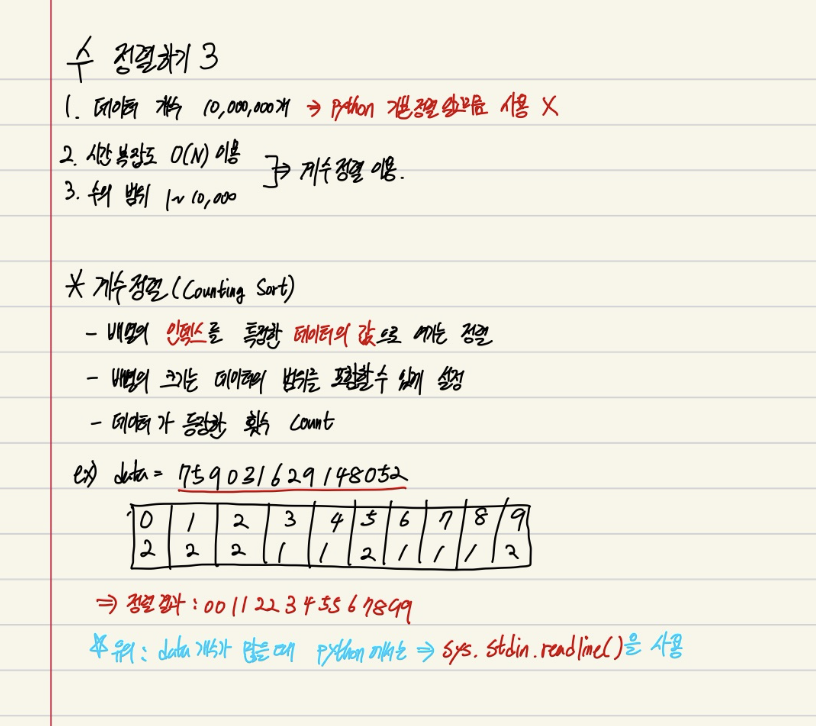 수 정렬하기 3
1. 데이터 개수 10,000,000개 → Python 기본 정렬 알고리즘 사용 X
2. 시간 복잡도 O(N) 이용
3. 수의 범위 1~10,000
⇒ 계수 정렬 이용.
* 계수 정렬 (Counting Sort)
- 배열의 인덱스를 특정한 데이터의 값으로 여기는 정렬
- 배열의 크기는 데이터의 범위를 포함할 수 있게 설정
- 데이터가 등장한 횟수 Count
ex) data = 759031629148052
0 1 2 3 4 5 6 7 8 9
2 2 2 1 1 2 1 1 1 2
⇒ 정렬 결과 : 001122345567899
☆ 유의 : data 개수가 많을 때 python에서는 ⇒ sys.stdin.readline()을 사용